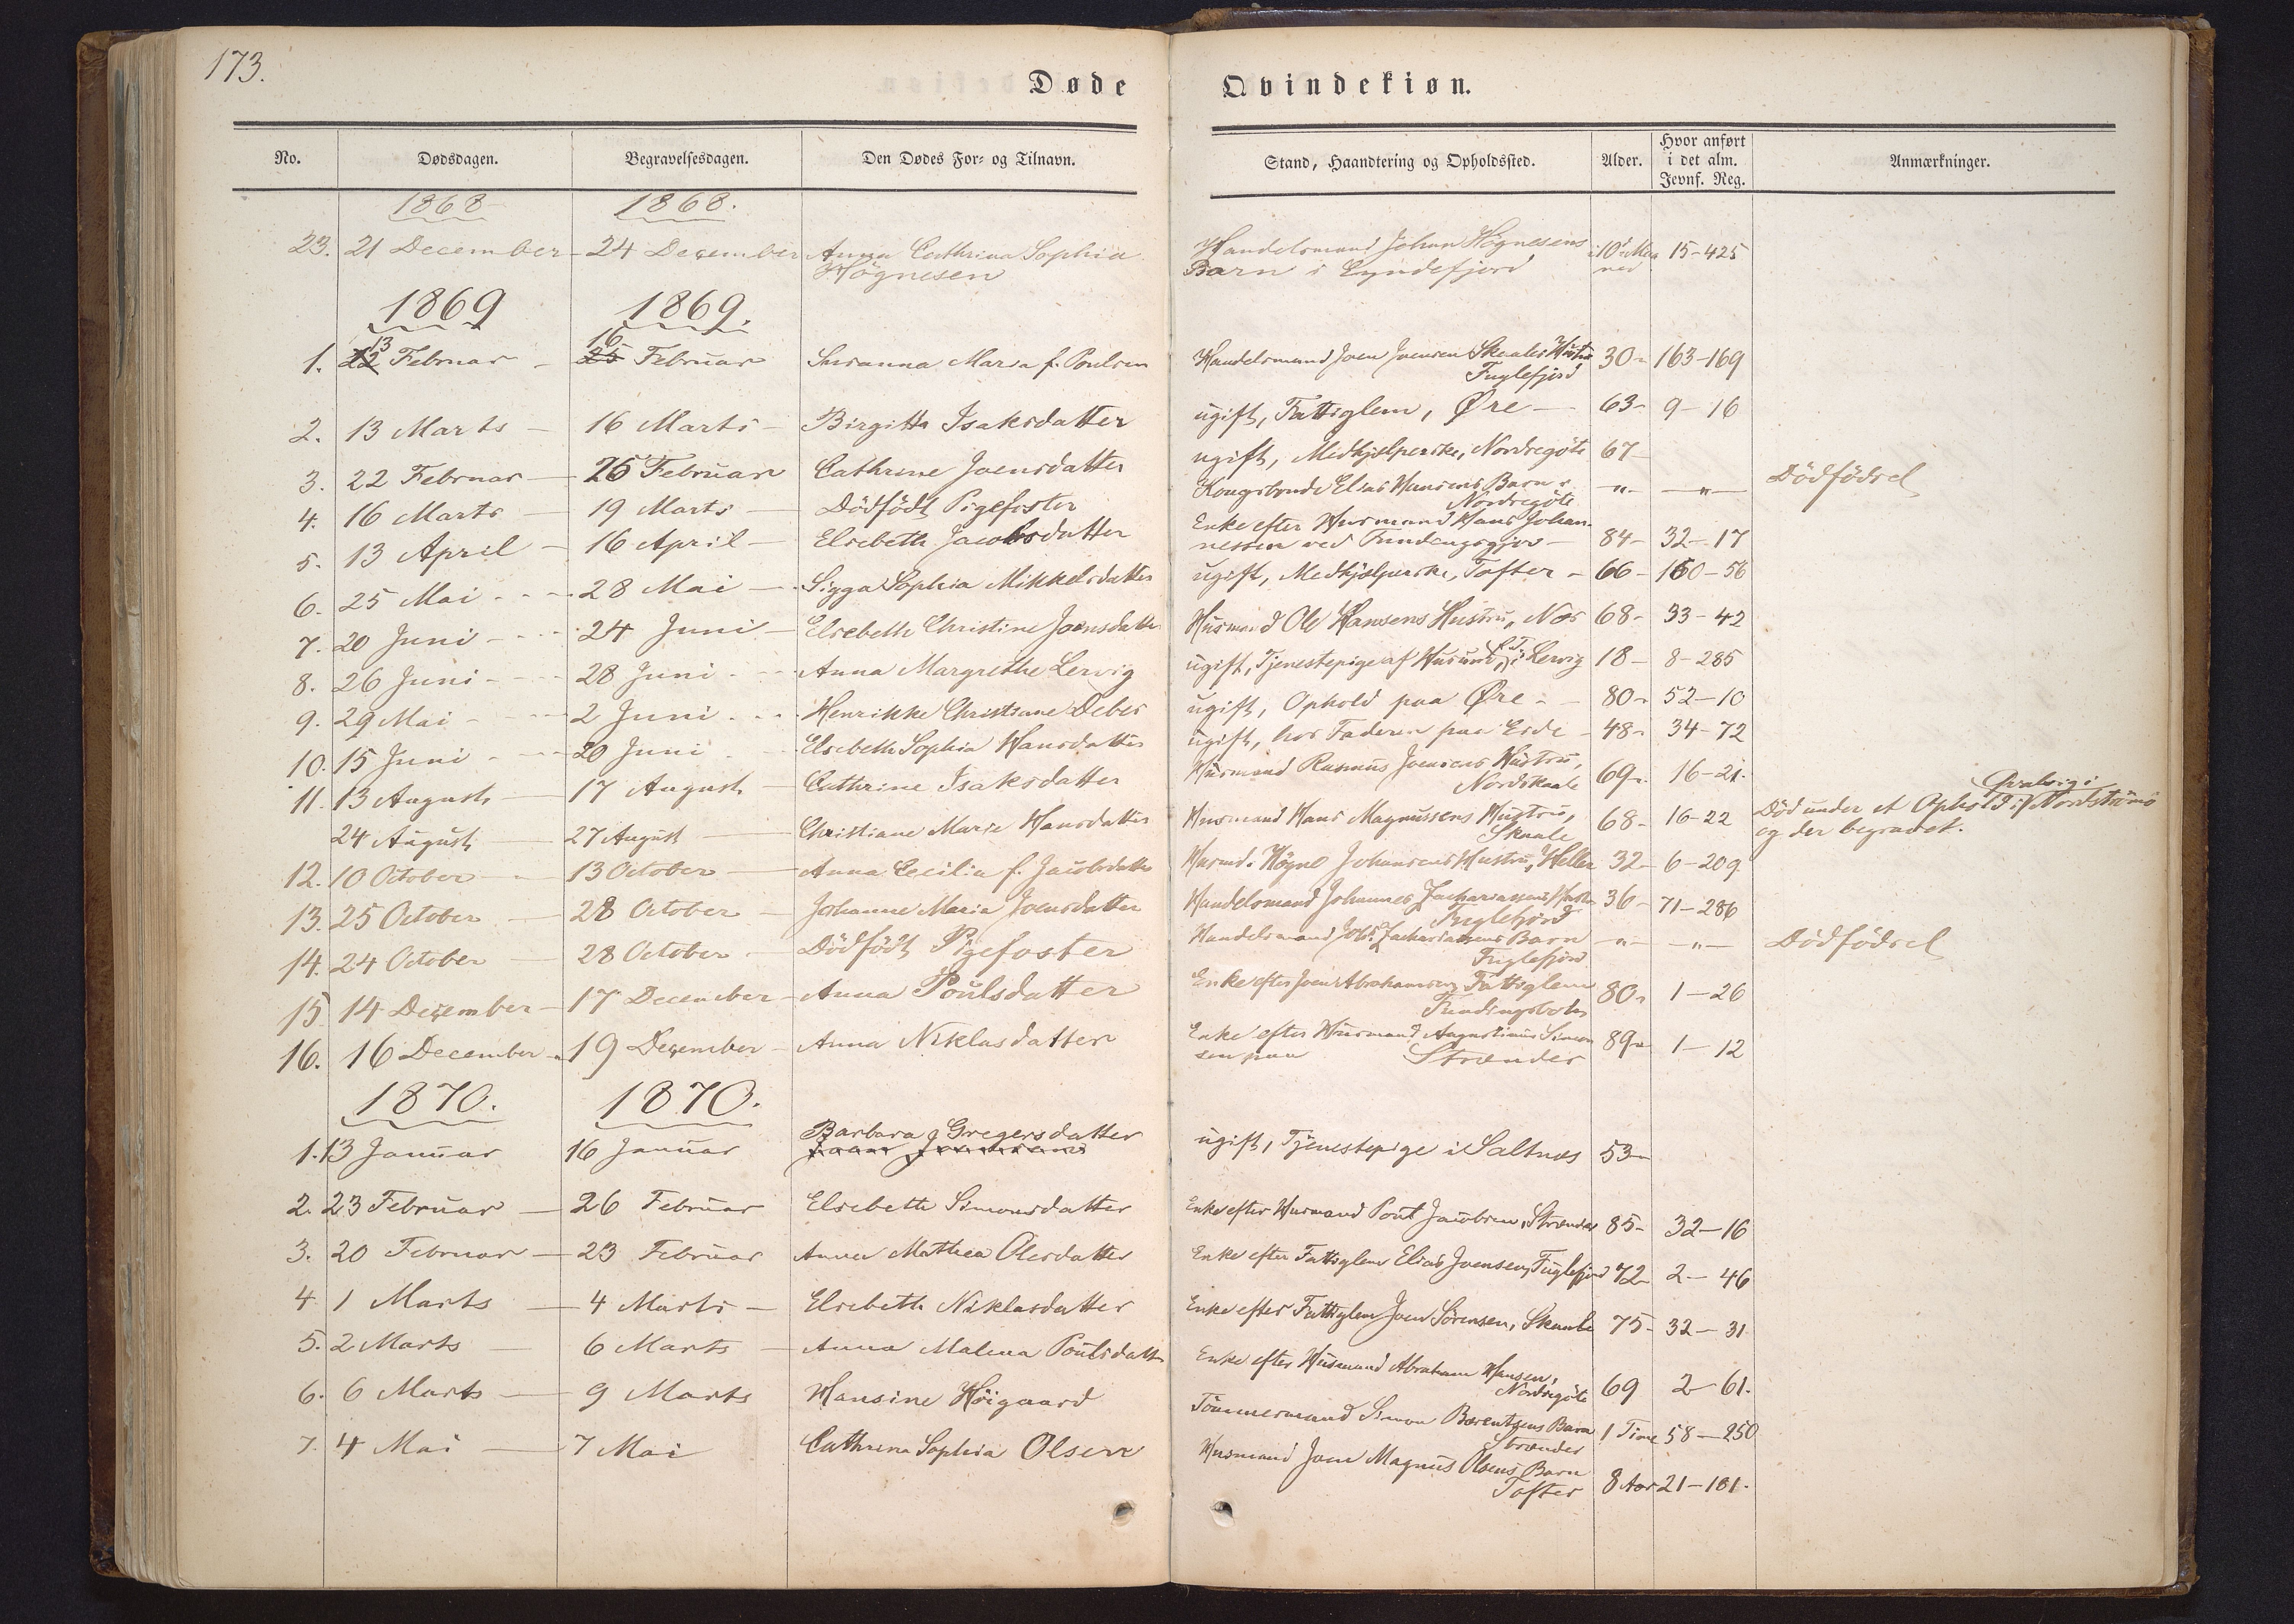 173.
Døde Qvindekiøn.
No. Dødsdagen. Begravelsesdagen. Den Dødes For- og Tilnavn. Stand, Haandtering og Opholdssted. Alder. Hvor anført i det alm. Jevnf. Reg. Anmærkninger.
1868 1868.
23. 21 December - 24 December Anna Cathrina Sophia Handelsmand Johan Högnesens 10 Maa 15-425
Högnesen Barn i Lyndefjord ned
1869 1869.
13 16
1. 12 Februar - 25 Februar Susanna Maria f. Poulsen Handelsmand Joen Joensen Skaales Hustru 30- 163-169
Fuglefjord
2. 13 Marts - 16 Marts - Birgitta Isaksdatter ugift, Fattiglem, Øre - 63- 9-16
3. 22 Februar - 26 Februar Cathrine Joensdatter ugift, Medhjelperske, Nordregöte 67-
4. 16 Marts - 19 Marts - Dödfödt Pigefoster Kongsbonde Elias Hansens Barn i -"- -"- Dödfödsel
Nordregöte
5. 13 April - 16 April - Elsebeth Jacobsdatter Enke efter Husmand Hans Johan-
nessen ved Fundengsgjov - 84- 32-17
6. 25 Mai - 28 Mai - Sigga Sophia Mikkelsdatter ugift, Medhjelperske, Tofter - 66- 160-56
7. 20 Juni - 24 Juni - Elsebeth Christine Joensdatter Husmand Ole Hansens Hustru, Næs 68- 33-42
8. 26 Juni - 28 Juni - Anna Margrethe Lervig ugift, Tjenestepige af Husund, i Lervig 18- 8-285
9. 29 Mai - 2 Juni - Henrikke Christiane Debes ugift, Ophold paa Øre - 80- 52-10
10. 15 Juni - 20 Juni - Elsebeth Sophia Hansdatter ugift, hos Faderen paa Eide - 48- 34-72
11. 13 August - 17 August - Cathrine Isaksdatter Husmand Rasmus Joensens Hustru, 69- 16-21.
Nordskaale
24 August - 27 August - Christiane Marie Hansdatter Husmand Hans Magnussens Hustru, 68- 16-22 Död under et Ophold i Qvalvig i Nordströmö
Skaale og der begravet.
12. 10 October - 13 October - Anna Cecilia f. Jacobsdatter Husmd. Högne Johansens Hustru, Heller 32- 6-209
13. 25 October - 28 October - Johanne Maria Joensdatter Handelsmand Johannes Zachariassens Hustru 36- 71-286
Fuglefjord
14. 24 October - 28 October - Dödfödt Pigefoster Handelsmand Johs. Zachariassens Barn -"- -"- Dödfödsel
Fuglefjord
15 14 December - 17 December - Anna Poulsdatter Enke efter Joen Abrahamsen, Fattiglem 80- 1-26
Fundingsbotn
16. 16 December - 19 December - Anna Niklasdatter Enke efter Husmand Augustinus Simon 89- 1-12
sen paa Strænder
1870. 1870.
1. 13 Januar 16 Januar Barbara Gregersdatter ugift, Tjenestepige i Saltnæs 53-
2. 23 Februar - 26 Februar Elsebeth Simonsdatter Enke efter Husmand Poul Jacobsen, Strænder 85- 32-16
3. 20 Februar - 23 Februar Anna Mathea Olesdatter Enke efter Fattiglem Elias Joensen, Fuglefjord 72- 2-46
4 1 Marts - 4 Marts - Elsebeth Niklasdatter Enke efter Fattiglem Joen Sörensen, Skaale 75- 32-31
5. 2 Marts - 6 Marts - Anna Malena Poulsdatter Enke efter Husmand Abraham Hansen, 69 2-61.
Nordregöte
6. 6 Marts - 9 Marts Hansine Höigaard Tömmermand Simon Barentsens Barn 1 Time 58-250
Strænder
7. 4 Mai - 7 Mai Cathrina Sophia Olsen Husmand Joen Magnus Olsens Barn 8 Aar 21-181.
Tofter